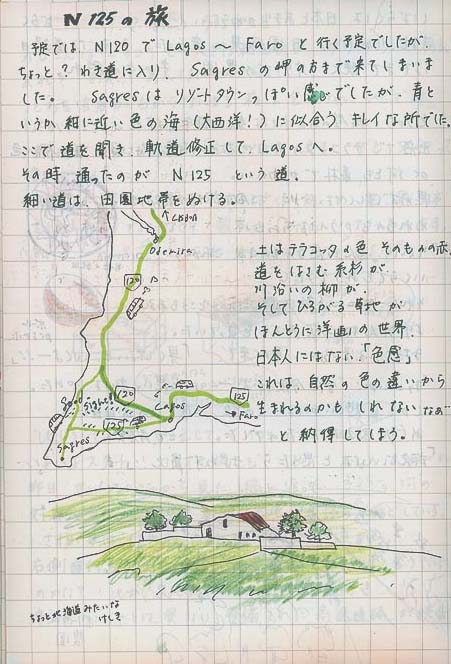 N125の旅
予定では N120 で Lagos～ Faro と行く予定でしたが、
ちょっと？わき道に入り、Sagres の岬の方まで来てしまいま
した。 Sagresは リゾートタウンっぽい感じでしたが、青と
いうか紺に近い色の海（大西洋！）に似合う キレイな所でした。
ここで道を聞き、軌道修正して、Lagosへ。
その時 通ったのが N125 という道。
細い道は、田園地帯をぬける。
Lisbon
Odemira
120
土はテラコッタの色 そのものの赤、
道をはさむ糸杉が、
川沿いの柳が、
そしてひろがる草地が
ほんとうに洋画の世界。
日本人にはない「色感」
これは、自然の色の違いから
生まれるのかも しれない なぁ
と納得してしまう。
120
Lagos
125
Faro
Good
Sight!
125
Sagres
ちょっと北海道みたいな
けしき